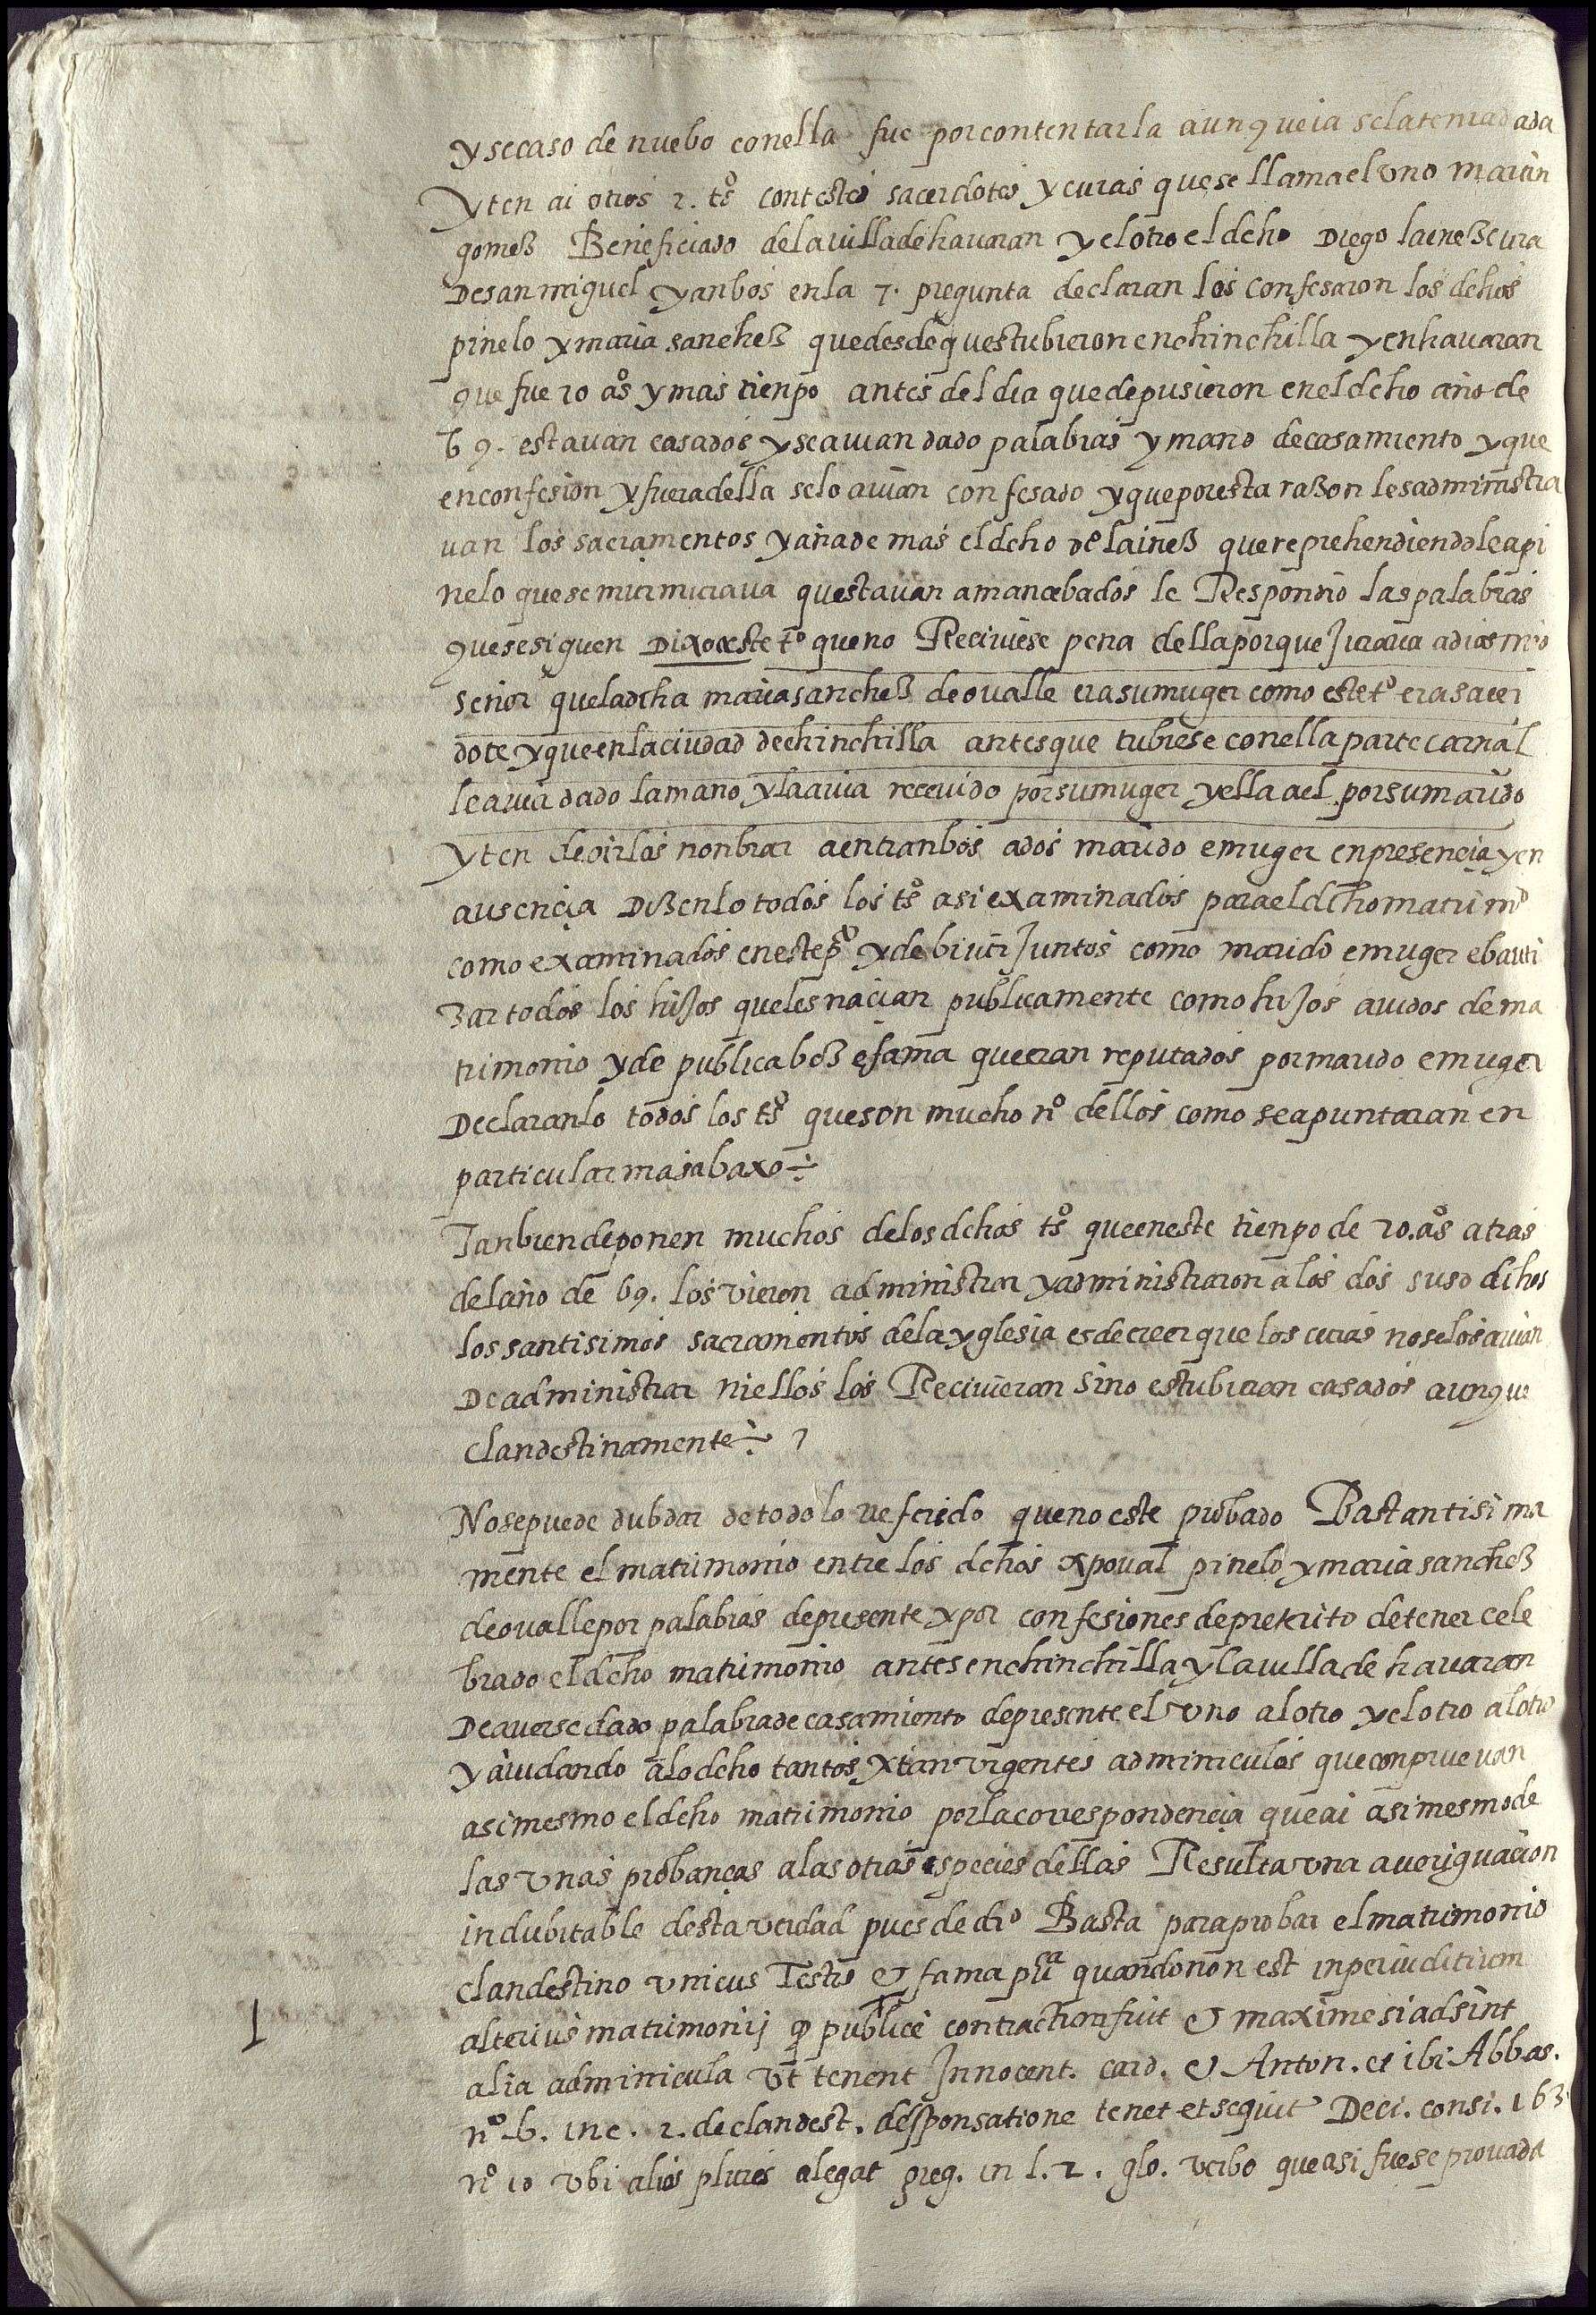 y se caso de nuebo con ella fue por contentarla aunque ia se la tenia dada
yten ai otros 2. tºs contestes sacerdotes y curas que se llama el vno martin
gomez Beneficiado de la villa de havaran y el otro el dcho Diego lainez cura
De san miguel y anbos en la 7. pregunta declaran los confesaron los dchos
pinelo y maria sanchez que desde questubieron en chinchilla y en havaran
que fue 20 aºs y mas tienpo antes del dia que depusieron en el dcho año de
69. estavan casados y se avian dado palabras y mano de casamiento y que
en confesion y fuera della se lo avian confesado y que por esta razon les administra
van los sacramentos y añade mas el dcho de lainez que reprehendiendole a pi
nelo que se murmurava questavan amancebados le Respondio las palabras
que se siguen Dixo a este tº que no Reciviese pena della porque Jurava a dios nro
señor que la dcha maria sanchez de ovalle era su muger como este tº era sacer
dote y que en la ciudad de chinchilla antes que tubiese con ella parte carnal
le avia dado la mano y la avia recevido por su muger y ella a el por su marido
yten de oirlos nonbrar a entranbos a dos marido e muger en presencia y en
ausencia Dizenlo todos los tºs asi examinados para el dcho matrimº
como examinados en este pº y de biuir Juntos como marido e muger e bauti
zar todos los hijos que les nacian publicamente como hijos avidos de ma
trimonio y de publica boz e fama que eran reputados por marido e muger
Declaranlo todos los tºs que son mucho nº dellos como se apuntaran en
particular mas abaxo ÷
Tanbien deponen muchos de los dchos tºs que en este tienpo de 20. aºs atras
del año de 69. los vieron administrar y administraron a los dos suso dichos
los santisimos sacramentos de la yglesia es de creer que los curas no se los avian
De administrar ni ellos los Recivieran sino estubieran casados aunque
clandestinamente ÷
No se puede dubdar de todo lo referido que no este probado Bastantisima
mente el matrimonio entre los dchos xpoval pinelo y maria sanchez
de ovalle por palabras de presente y por confesiones de preterito de tener cele
brado el dcho matrimonio antes en chinchilla y la villa de havaran
De averse dado palabra de casamiento de presente el vno al otro y el otro al otro
y aiudando a lo dcho tantos y tan vrgentes adminiculos que conpruevan
asimesmo el dcho matrimonio por la correspondencia que ai asimesmo de
las vnas probanças a las otras especies dellas Resulta vna averiguacion
indubitable desta verdad pues de drº Basta para probar el matrimonio
clandestino vnicus Testis et fama puca quando non est in periuditium
alterius matrimonij qd publice contractum fuit et maxime si adsint
alia adminicula vt tenent Innocent. card. et Anton. et ibi Abbas.
nº 6. in c. 2. de clandest. desponsatione tenet et sequit Deci. consi. 163
nº 10 vbi alios plures alegat greg. in l. 2. glo. verbo que asi fuese provada
1